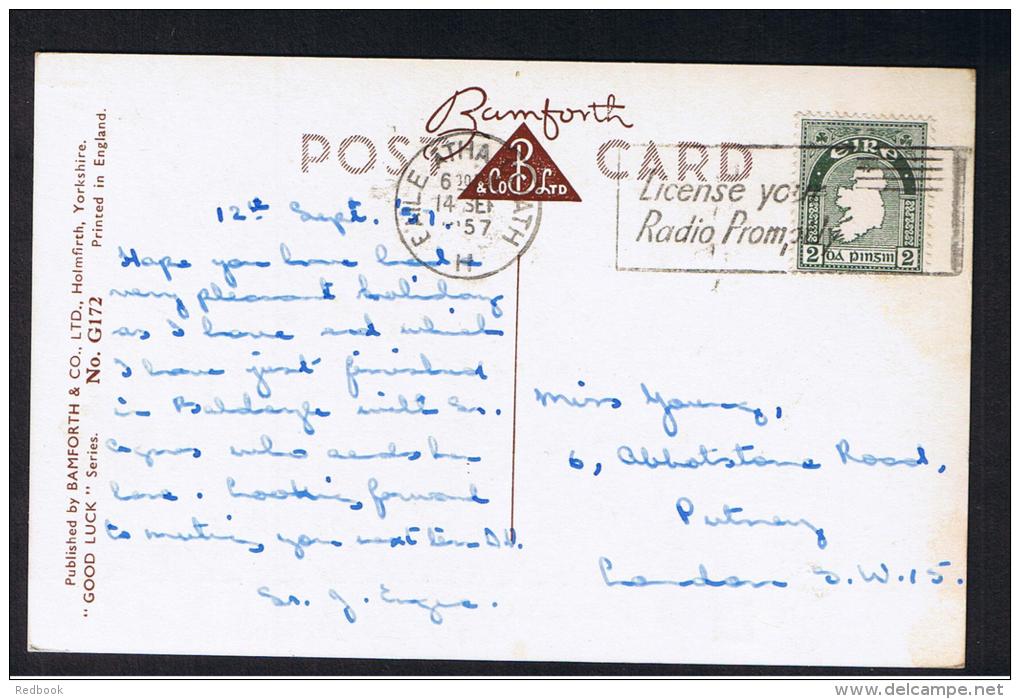 Bamforth
POST CARD
B
& Co LTD
BAILE ÁTHA CLIATH
14 SEP
1957
H
License your
Radio Promptly
EIRE
2 DÁ PINGIN 2
Published by BAMFORTH & CO., LTD., Holmfirth, Yorkshire.
Printed in England.
"GOOD LUCK" Series.
No. G172
12th Sept. '57.
Hope you have had a
very pleasant holiday
as I have and which
I have just finished
in with Sr.
Agnes who sends her
love. Looking forward
to meeting you next term D.V.
Sr. J.
Miss Young,
6, Abbotstone Road,
Putney
London S.W.15.
Redbook
www.delcampe.net